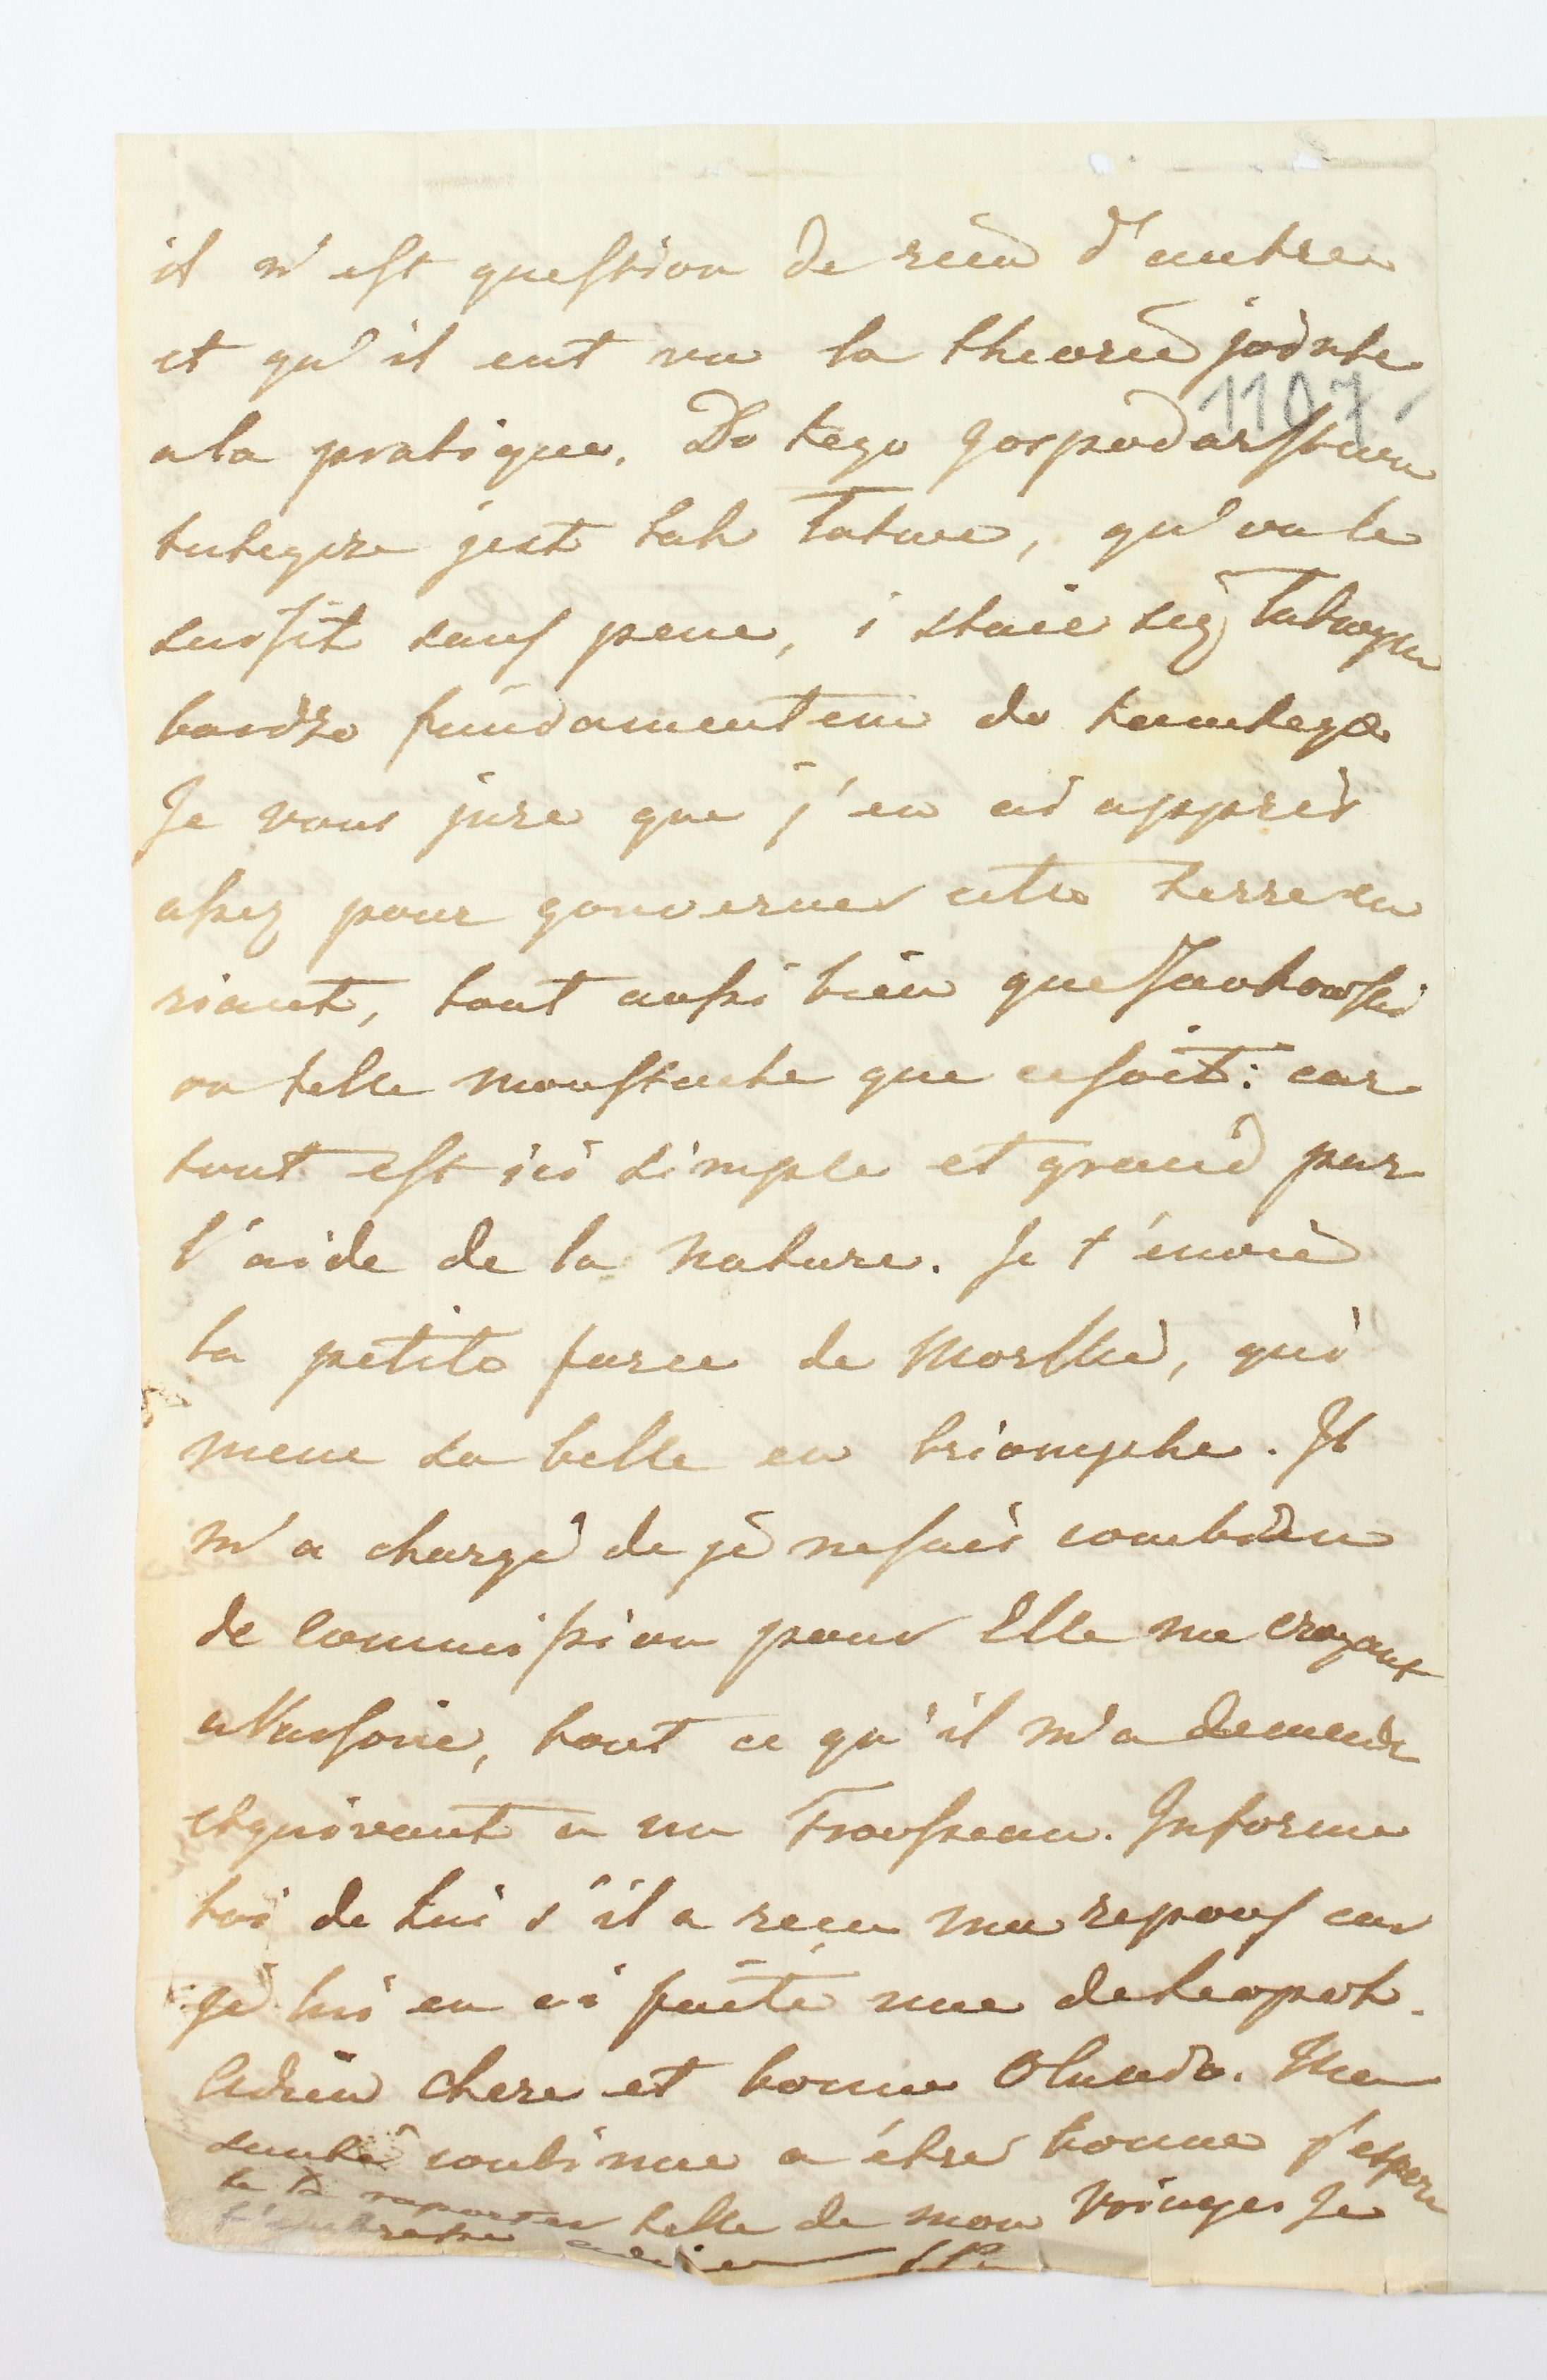 il n'est question de rien d'autre
et qu'il eut vu la theorie jointe
1107
a la pratique. Do tego gospodarstwa
tutejsze jest tak Tatwe, qu'on le
suffit sans pene, i staie się Tatwym
bardzo fundamentem do tamtego
Je vous jure que j'en ai appris
assez pour gouverner cette terre en
riant, tout aussi bien que Jankowski
ou telle moustache que ce soit: car
tout est ici simple et grand par
l'aide de la nature. Je t'envoie
la petite farce de Morski, qui
mene sa belle en triomphe. Il
m'a chargé de je ne sais combien
de commission pour Elle me croyant
a Varsovie, tout ce qu'il m'a demandé
equivaut a un Trousseau. Informe
toi de lui s'il a reçu ma repons car
je lui en ai faite une de
Adieu chere et bonne Olunda. Ma
santé continue a étre bonne j'espere
te la raporter telle de mon Voiuages Je
t'embrasse SP.